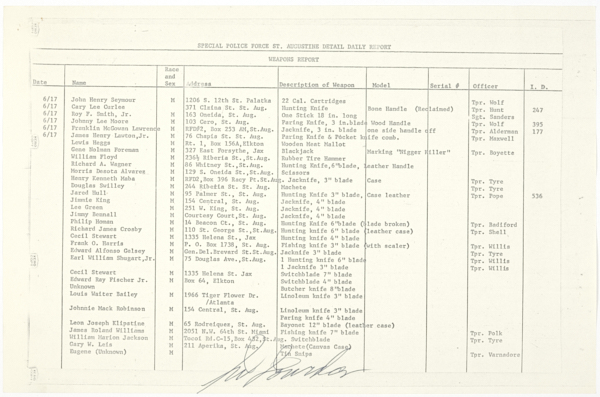 SPECIAL POLICE FORCE ST. AUGUSTINE DETAIL DAILY REPORT
WEAPONS REPORT
Date Name Race and Sex Address Description of Weapon Model Serial # Officer I. D.
6/17 John Henry Seymour M 1206 S. 13th St. Palatka 22 Cal. Cartridges Tpr. Wolf
6/17 Gary Lee M 371 St. Aug. Hunting Knife Bone Handle (Reclaimed) Tpr. Hunt 247
6/17 Roy F. Smith, Jr. M 163 Oneida, St. Aug. One Stick 18 in. long Sgt. Sanders
6/17 Johnny Lee Moore M 103 Cern, St. Aug. Paring Knife, 3 in. blade Wood Handle Tpr. Wolf 395
6/17 Franklin McGowen Lawrence M RFD#2, Box 253 AH, St.Aug. Jacknife, 3 in. blade one side handle off Tpr. Alderman 177
6/17 James Henry Lawton, Jr. M 76 Chapin St. St. Aug. Paring Knife & Pocket knife comb. Tpr. Maxwell
Lewis Haggs M Rt. 1, Box 136A, Elkton Wooden Meat Mallat
Coas Holmes Foreman M 327 East Forsythe, Jax Blackjack Marking "Nigger Killer" Tpr. Boyette
William Floyd M 236½ Riberia St., St.Aug. Rubber Tire Hammer
Richard A. Wagner M 86 Whitney St., St.Aug. Hunting Knife, 6"blade, Leather Handle
Morris Deasta Alvarez M 129 S. Oneida St., St.Aug. Scissors
Henry Kenneth Muha M RFD2, Box 396 Racy Pt.St.Aug. Jacknife, 3" blade Case Tpr. Tyre
Douglas Dailley M 244 Riberia St. St. Aug. Machete Tpr. Tyre
Jarod Hull M 95 Palmer St., St. Aug. Hunting Knife 3" blade, Case leather Tpr. Pope 536
Jimmie King M 154 Central, St. Aug. Jacknife, 4" blade
Lee Green M 251 W. King, St. Aug. Jacknife, 4" blade
Jimmy Bonnell M Courtesy Court, St. Aug. Jacknife, 4" blade
Philip Homan M 14 Beacon Ct., St. Aug. Hunting Knife 6"blade (blade broken) Tpr. Rediford
Richard James Crosby M 110 St. George St., St.Aug. Hunting knife 6" blade (leather case) Tpr. Shell
Cecil Stewart M 1335 Helena St., Jax Hunting knife 4" blade
Frank O. Norris M P. O. Box 1738, St. Aug. Fishing knife 3" blade (with scaler) Tpr. Willis
Edward Alfonso Gelsey M Gen.Del.Brevard St.St.Aug. Jacknife 3" blade Tpr. Tyre
Karl William Shugart, Jr. M 75 Douglas Ave., St.Aug. 1 Hunting knife 6" blade Tpr. Willis
1 Jacknife 3" blade Tpr. Willis
Cecil Stewart M 1335 Helena St. Jax Switchblade 7" blade
Edward Ray Fischer Jr. M Box 64, Elkton Switchblade 4" blade
Unknown Butcher knife 8"blade
Louis Walter Bailey M 1966 Tiger Flower Dr. Linoleum knife 3" blade
/Atlanta
Johnnie Mack Robinson M 154 Central, St. Aug. Linoleum knife 3" blade
Paring knife 4" blade
Leon Joseph Klipstine M 65 Rodreiques, St. Aug. Bayonet 12" blade (leather case)
James Roland Williams M 2051 N.W. 64th St. Miami Fishing knife 7" blade Tpr. Polk
William Marion Jackson M Tacoi Rd.C-13, Box 452, St.Aug. Switchblade Tpr. Tyre
Gary W. Leis M 711 Aperika, St. Aug. Machete(Canvas Case)
Eugene (Unknown) M Tin Snips Tpr. Varnadore